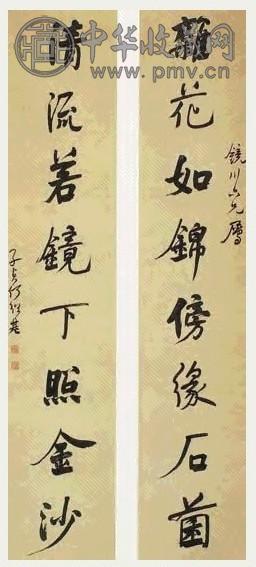 中华收藏网
www.pmv.cn
雜花如錦傍緣石菌
鏡川六兄屬
清流若鏡下照金沙
子貞何紹基